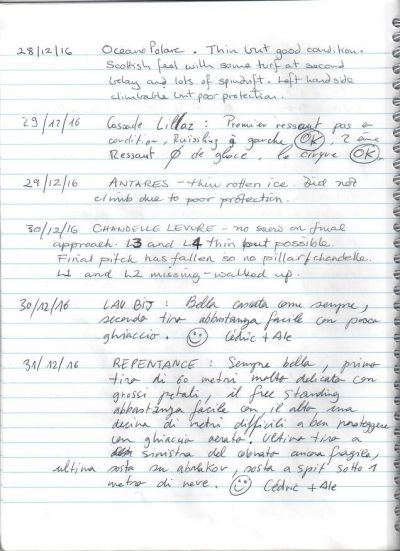 28/12/16 Oceano Polare. Thin but good condition.
Scottish feel with some turf at second
belay and lots of spindrift. Left handside
climbable but poor protection.
29/12/16 Cascade Lillaz : Premier ressaut pas en
condition, Ruissling à gauche OK, 2 ème
Ressaut Ø de glace. le cirque OK.
29/12/16 ANTARES - thin rotten ice. Did not
climb due to poor protection.
30/12/16 CHANDELLE LEVURE - no snow on final
approach. L3 and L4 thin but possible.
Final pitch has fallen so no pillar/chandelle.
L1 and L2 missing - walked up.
30/12/16 LAU BIJ : Bella cascata come sempre,
secondo tiro abbastanza facile con poco
ghiaccio. ☺ Cédric + Ale
31/12/16 REPENTANCE : Sempre bella, primo
tiro di 60 metri molto delicato con
grossi petali, il free standing
abbastanza facile con il alto, una
decina di metri difficili a ben proteggere
con ghiaccio aerato. Ultimo tiro a
sinistra del colonato ancora fragile,
ultima sosta su abalakov, sosta a spit sotto 1
metro di neve. ☺ Cédric + Ale